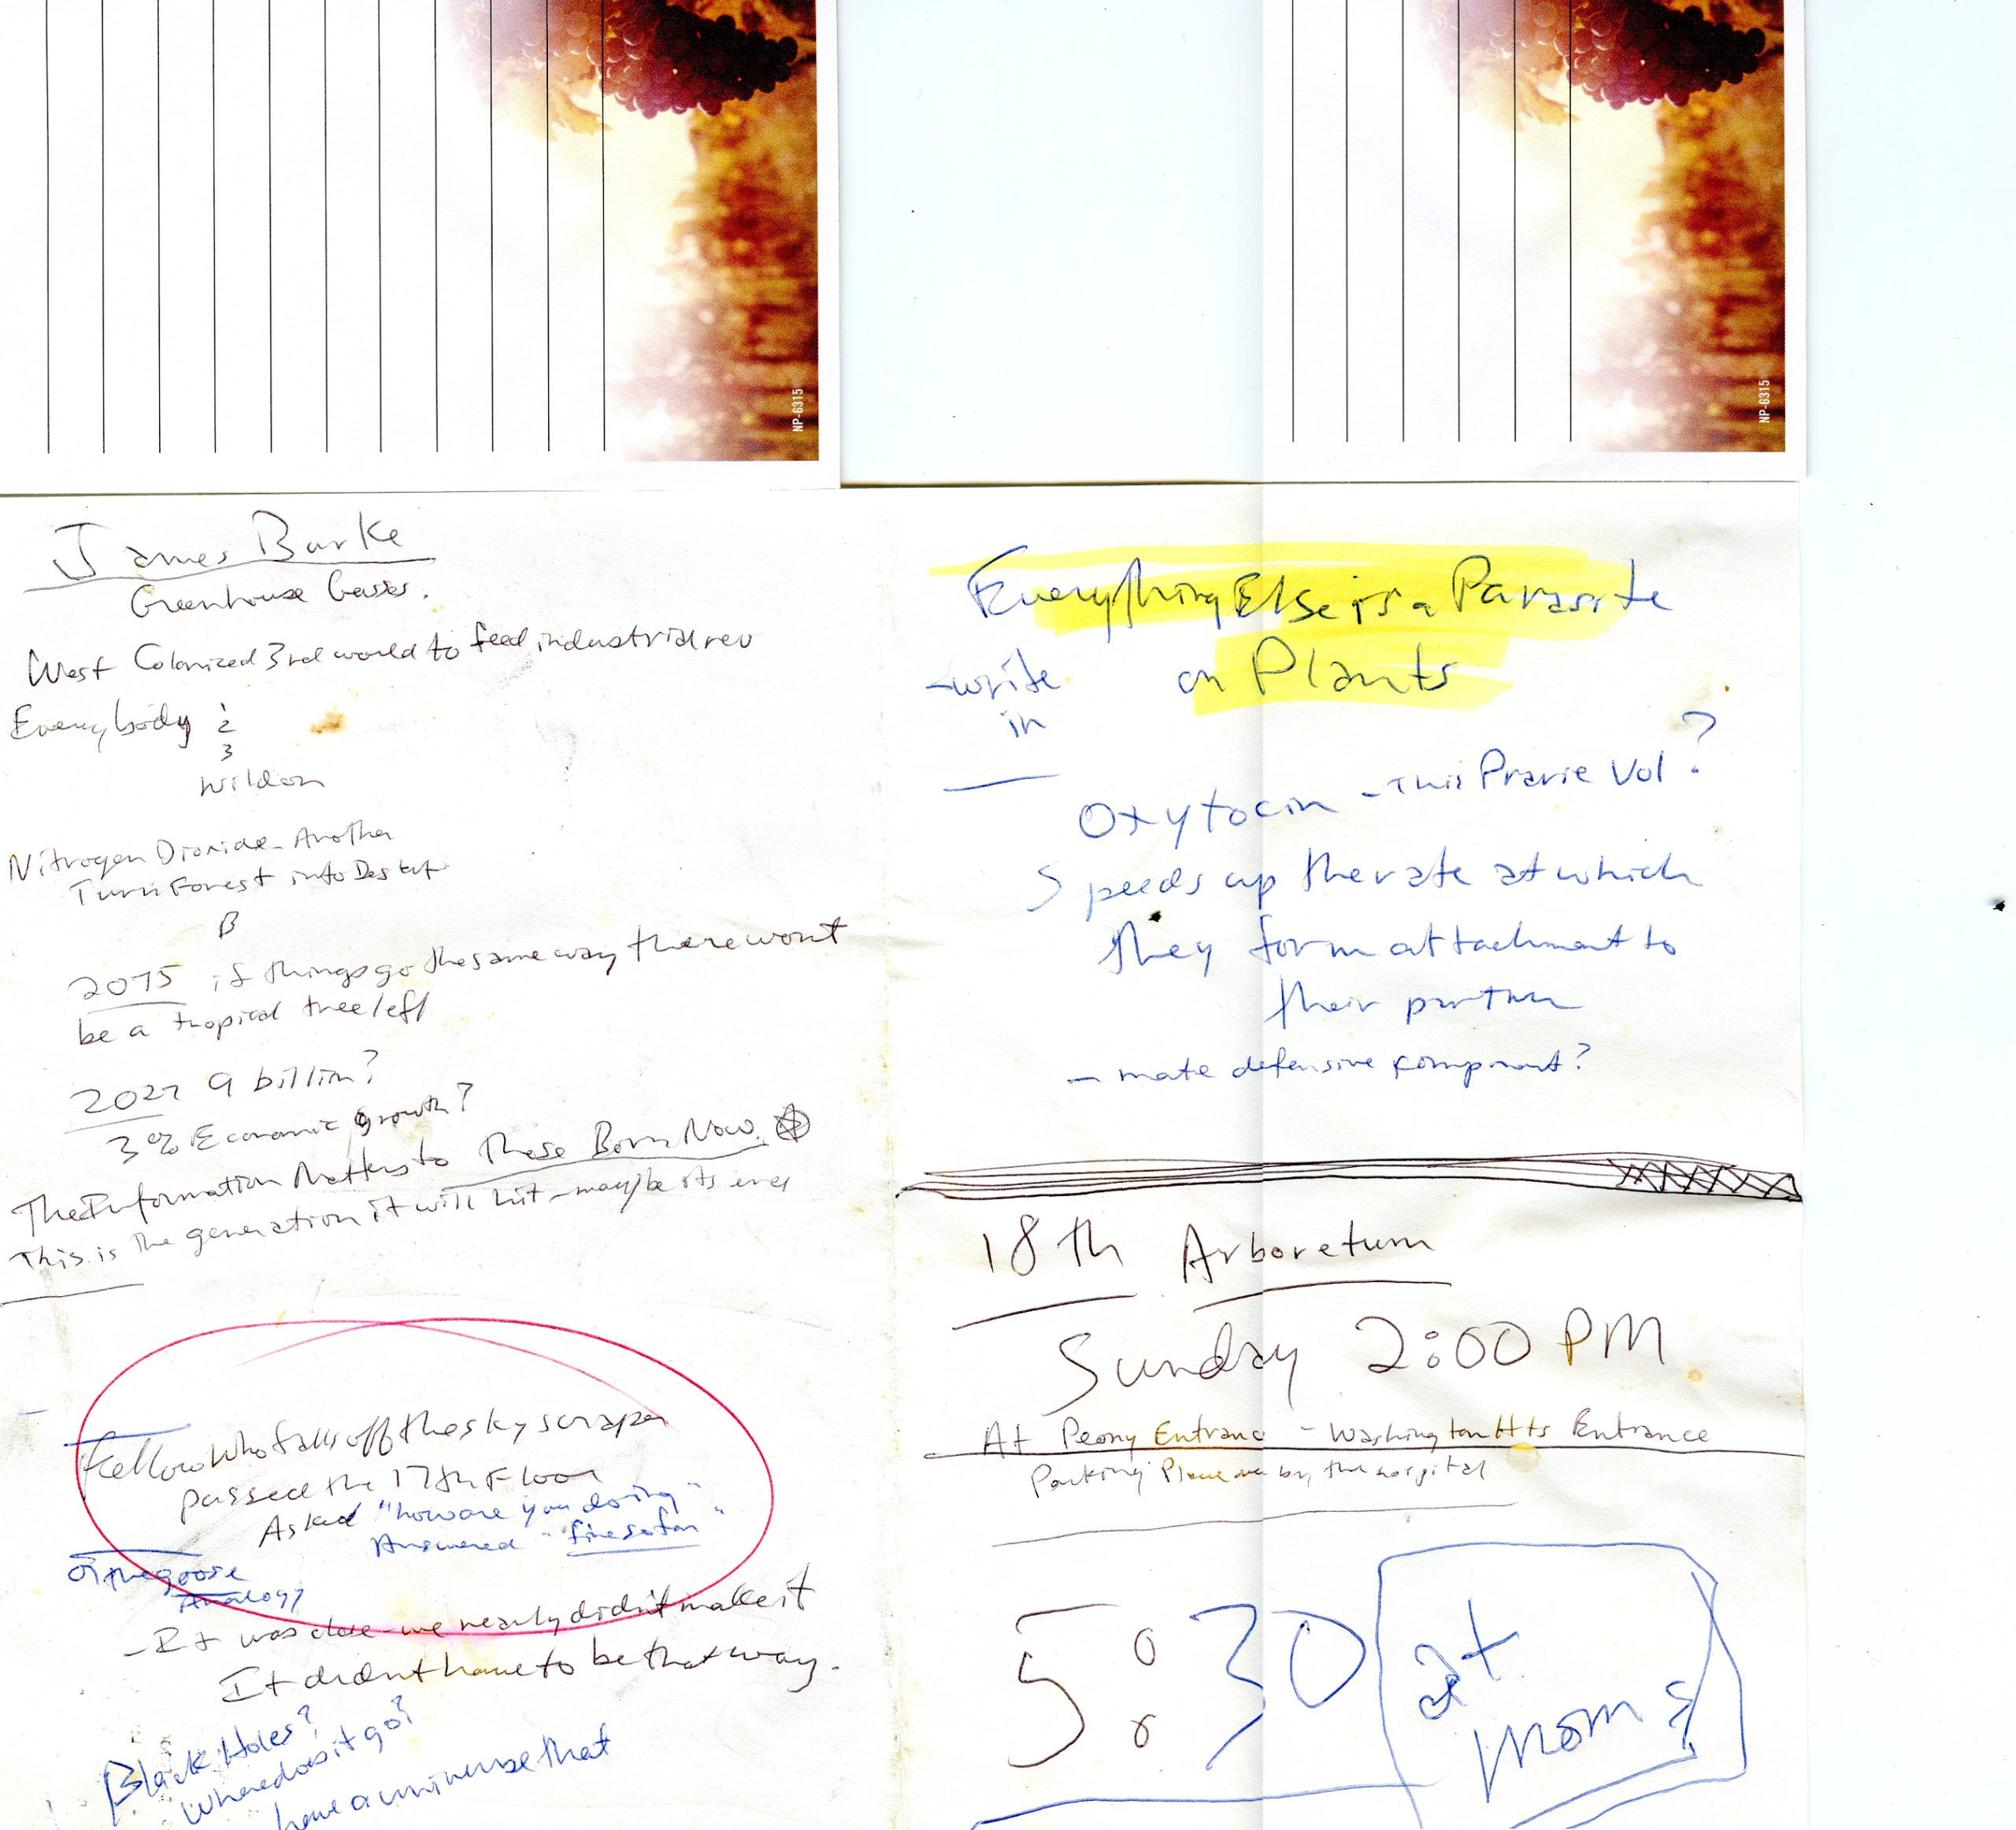 NP-6315
NP-6315
James Burke
Greenhouse Gasses.
West Colonized 3rd world to feed industrial rev
Everybody 1
2
3
Nitrogen Dioxide - Another
Turn Forest into
B
2075 if things go the same way there wont
be a tropical tree left
2027 9 billion?
3% Economic growth?
The Information Matters to Those Born Now.
This is the generation it will hit - maybe its
Fellow who falls off the sky scraper
passed the 17th Floor
Asked "how are you doing"
Answered "fine so far"
or the goose
Analogy
- It was close - we nearly didn't make it
It didn't have to be that way.
Black Holes?
Where does it go?
have a universe that
Everything Else is a Parasite
on Plants
- write
in
Oxytocin - This Prarie Vol?
Speeds up the rate at which
they form attachment to
their partner
- mate defensive component?
18th Arboretum
Sunday 2:00 PM
At Peony Entrance - Washington Hts Entrance
Parking by the hospital
5:30 at
Moms